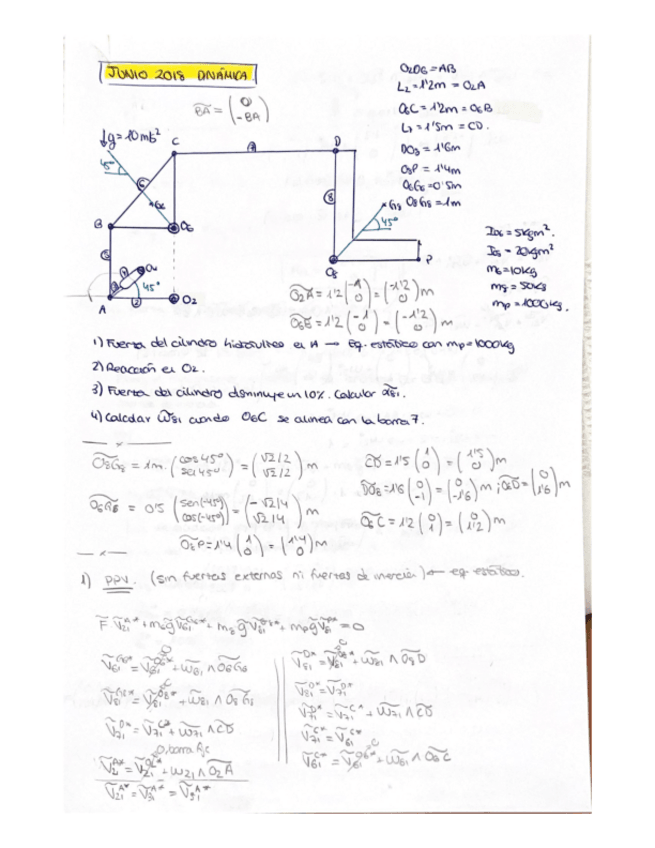 JUNIO 2018 DINÁMICA
O2O6 = AB
L2 = 1'2m = O2A
O6C = 1'2m = O6B
L7 = 1'5m = CD.
DO8 = 1'6m
O8P = 1'4m
O6G6 = 0'5m
O8G8 = 1m
BA = (0 -BA)
↓g = 10 m/s²
C
7
D
45º
6
G6
B
O6
8
G8
45º
5
O4
45º
A
2
O2
O8
P
I06 = 5kgm².
I08 = 20kgm²
m6 = 10kg
m8 = 50kg
mp = 1000kg.
O2A = 1'2 (-1 0) = (-1'2 0) m
O6B = 1'2 (-1 0) = (-1'2 0) m
1) Fuerza del cilindro hidráulico en A → Eq. estático con mp = 1000kg
2) Reacción en O2.
3) Fuerza del cilindro disminuye un 10%. Calcular α81.
4) Calcular ω81 cuando O6C se alinea con la barra 7.
O8G8 = 1m. (cos 45º sen 45º) = (√2/2 √2/2) m
CD = 1'5 (1 0) = (1'5 0) m
O6G6 = 0'5 (sen(-45º) cos(-45º)) = (-√2/4 √2/4) m
DO8 = 1'6 (0 -1) = (0 -1'6) m ; O8D = (0 1'6) m
O8P = 1'4 (1 0) = (1'4 0) m
O6C = 1'2 (0 1) = (0 1'2) m
1) PPV. (sin fuerzas externas ni fuerzas de inercia) ← eq. estático.
F V21^A* + m6 g V61^G6* + m8 g V81^G8* + mp g V81^P* = 0
V61^G6* = V61^O6* + ω61 ∧ O6G6
V81^G8* = V81^O8* + ω81 ∧ O8G8
V71^D* = V71^C* + ω71 ∧ CD
V21^A* = V21^O2* + ω21 ∧ O2A
V21^A* = V31^A* = V51^A*
V81^D* = V81^O8* + ω81 ∧ O8D
V81^D* = V71^D*
V71^D* = V71^C* + ω71 ∧ CD
V71^C* = V61^C*
V61^C* = V61^O6* + ω61 ∧ O6C